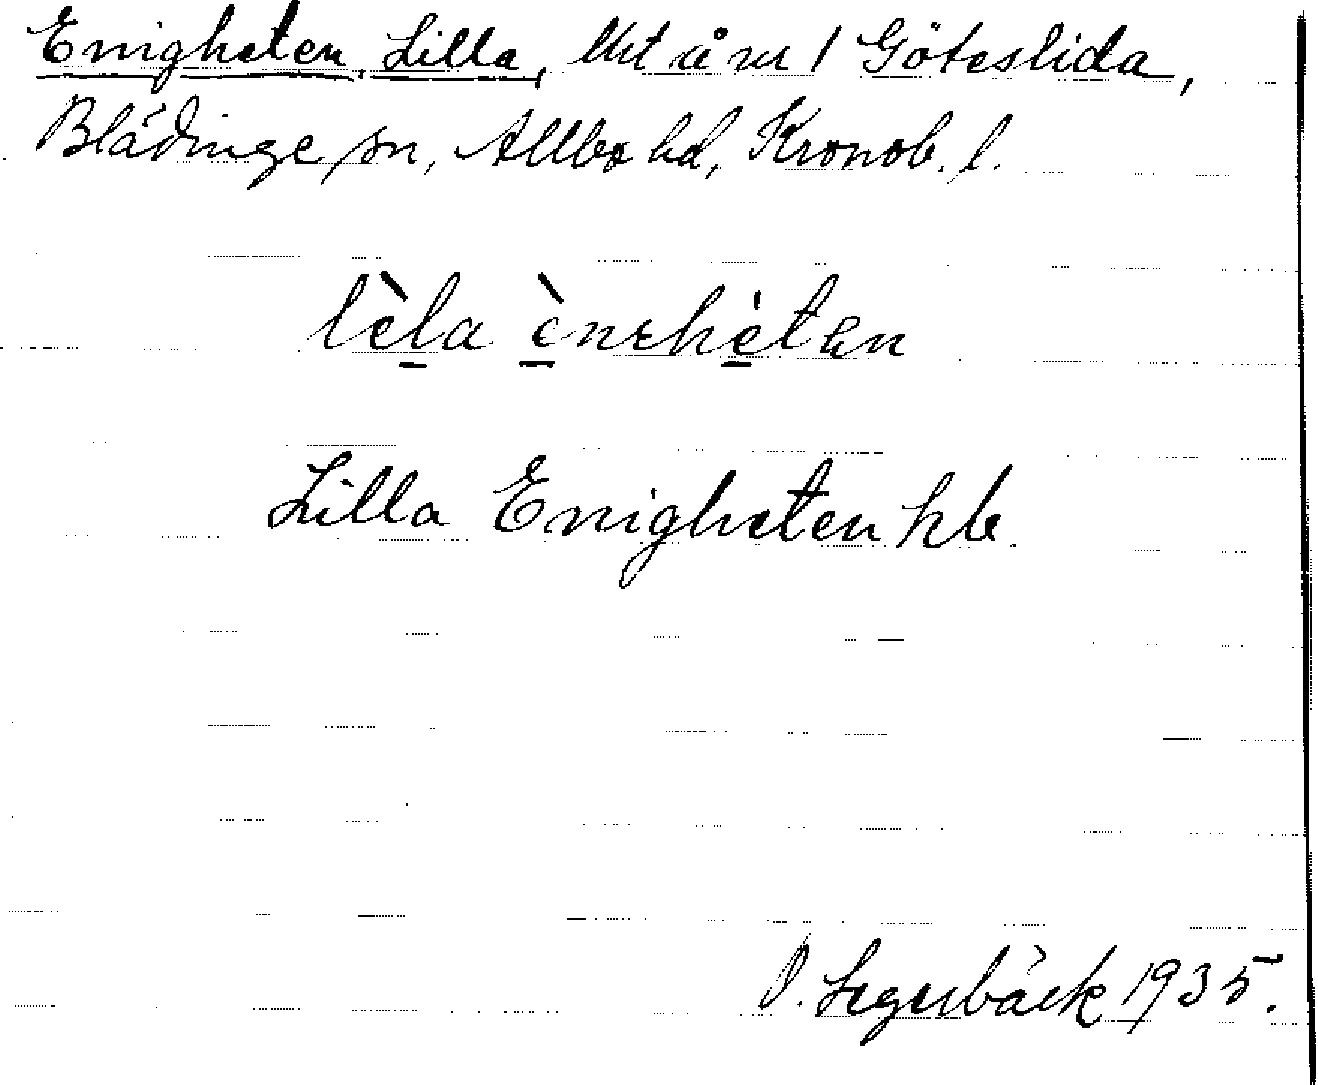 Enigheten, Lilla, Utt å nr 1 Göteslida,
Blädinge sn, Allbo hd, Kronob. l.
lèla ènehètən
Lilla Enigheten hle.
O. Segerbäck 1935.